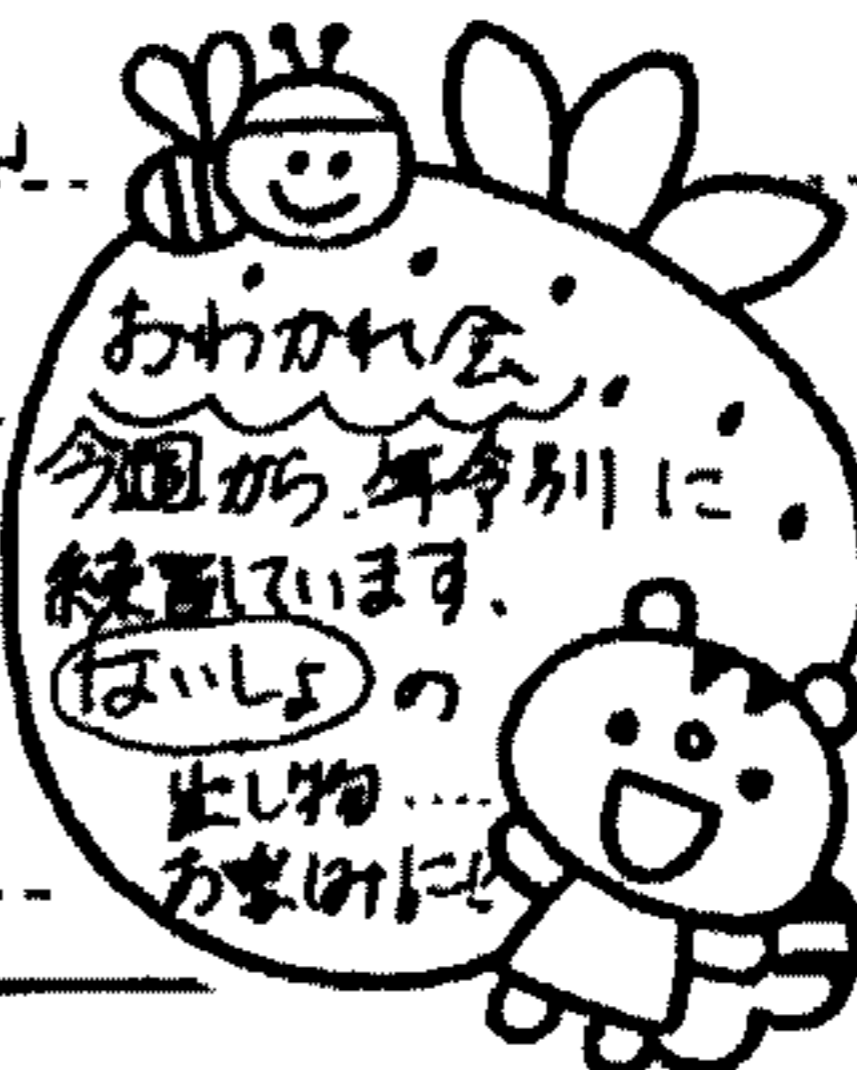 おわかれ会
今週から、年令別に
練習しています。
ないしょの
出し物……
お楽しみに!